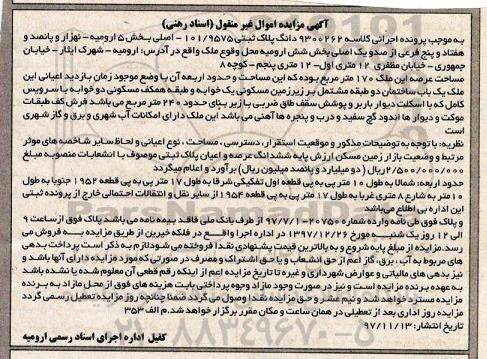 آگهی مزایده اموال غیر منقول (اسناد رهنی)
به موجب پرونده اجرائی کلاسه ۹۳۰۰۲۶۲ دانگ پلاک ثبتی ۱۰۱/۹۵۷۵ - اصلی بخش ۵ ارومیه - نهزار و پانصد و
هفتاد و پنج فرعی از صد و یک اصلی بخش شش ارومیه محل وقوع ملک واقع در آدرس: ارومیه - شهرک ایثار - خیابان
جمهوری - خیابان مظفری ۱۲ متری اول - ۱۲ متری پنجم - کوچه ۸
مساحت عرصه این ملک ۱۷۰ متر مربع بوده که این مساحت و حدود اربعه آن با وضع موجود زمان بازدید اعیانی این
ملک یک باب ساختمان دو طبقه مشتمل بر زیرزمین مسکونی یک خوابه و طبقه همکف مسکونی دو خوابه با سرویس
کامل که با اسکلت دیوار باربر و پوشش سقف طاق ضربی با زیر بنای حدود ۲۴۰ متر مربع می باشد فرش کف طبقات
موکت و دیوار ها اندود گچ سفید و درب و پنجره ها آهنی می باشد این ملک دارای امکانات آب شهری و برق و گاز شهری
است
نظریه: با توجه به توضیحات مذکور و موقعیت استقرار، دسترسی، مساحت، نوع اعیانی و لحاظ سایر شاخصه های موثر
مرتبط و وضعیت بازار زمین مسکن ارزش پایه ششدانگ عرصه و اعیان پلاک ثبتی موصوف با انشعابات منصوبه مبلغ
۲/۵۰۰/۰۰۰/۰۰۰ ریال (دو میلیارد و پانصد میلیون ریال) برآورد و اعلام میگردد
حدود اربعه: شمالا به طول ۱۰ متر پی به پی قطعه اول تفکیکی شرقا به طول ۱۷ متر پی به پی قطعه ۱۹۵۲ جنوبا به طول
۱۰ متر به شارع ۸ متری غربا به طول ۱۷ متر پی به پی قطعه ۱۹۵۴ از سایر نقل و انتقالات احتمالی خارج از پرونده ثبتی
این اداره بی اطلاع می باشد
و پلاک فوق طی نامه وارده شماره ۲۰۷۵۰-۹۷/۷/۱۰ از طرف بانک ملی فاقد بیمه نامه می باشد پلاک فوق از ساعت ۹
الی ۱۲ روز یک شنبه مورخ ۱۳۹۷/۱۲/۲۶ در اداره اجرا واقع در فلکه خیرین از طریق مزایده به فروش می
رسد. مزایده از مبلغ پایه شروع و به بالاترین قیمت پیشنهادی نقدا فروخته می شود لازم به ذکر است پرداخت بدهی
های مربوط به آب، برق، گاز اعم از حق انشعاب و یا حق اشتراک و مصرف در صورتی که مورد مزایده دارای آنها باشد و
نیز بدهی های مالیاتی و عوارض شهرداری و غیره تا تاریخ مزایده اعم از اینکه رقم قطعی آن معلوم شده یا نشده باشد
به عهده برنده مزایده است و نیز در صورت وجود مازاد وجوه پرداختی بابت هزینه های فوق از محل مازاد به برنده
مزایده مسترد خواهد شد و نیم عشر و حق مزایده نقدا وصول می گردد ضمنا چنانچه روز مزایده تعطیل رسمی گردد
مزایده روز اداری بعد از تعطیلی در همان ساعت و مکان مقرر برگزار خواهد شد. م الف ۳۵۳
تاریخ انتشار: ۹۷/۱۱/۱۳
کفیل اداره اجرای اسناد رسمی ارومیه
۰۲۱-۸۸۳۴۹۶۷۰-۵